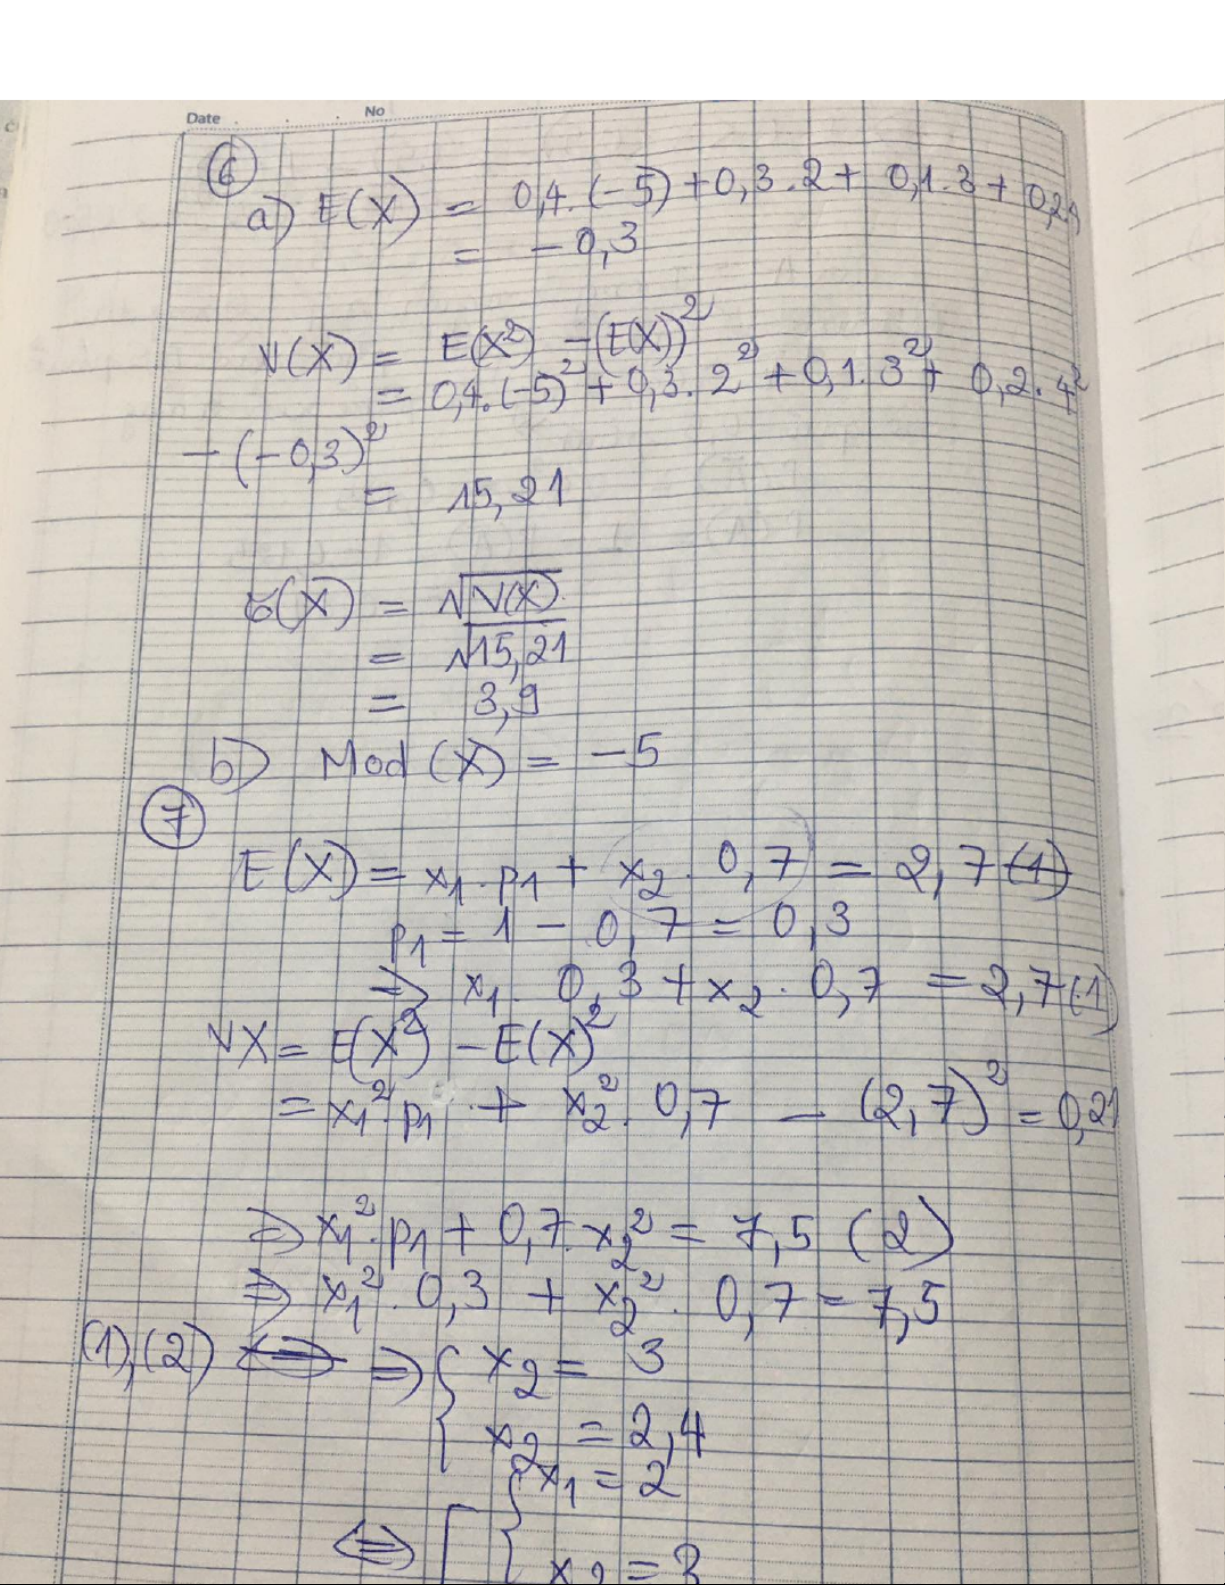 Date No
⑥
a) E(X) = 0,4.(-5) + 0,3.2 + 0,1.3 + 0,2.4
= -0,3
V(X) = E(X²) - (E(X))²
= 0,4.(-5)² + 0,3.2² + 0,1.3² + 0,2.4²
- (-0,3)²
= 15,21
σ(X) = √V(X)
= √15,21
= 3,9
b) Mod (X) = -5
⑦
E(X) = x₁.p₁ + x₂.0,7 = 2,7 (1)
p₁ = 1 - 0,7 = 0,3
=> x₁.0,3 + x₂.0,7 = 2,7 (1)
VX = E(X²) - E(X)²
= x₁².p₁ + x₂².0,7 - (2,7)² = 0,21
=> x₁².p₁ + 0,7.x₂² = 7,5 (2)
=> x₁².0,3 + x₂².0,7 = 7,5
(1),(2) => { x₂ = 3
x₂ = 2,4
<=> [ { x₁ = 2
x₂ = 3